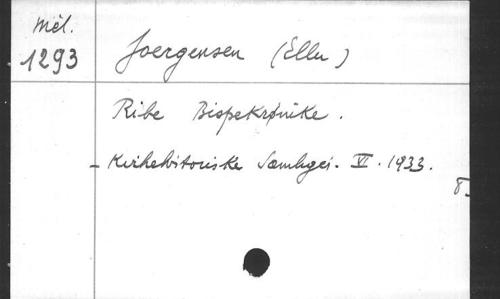 Mél.
1293
Joergensen (Ellen)
Ribe Bispekrønike.
- Kirkehistoriske Samlger. VI. 1933.
8.